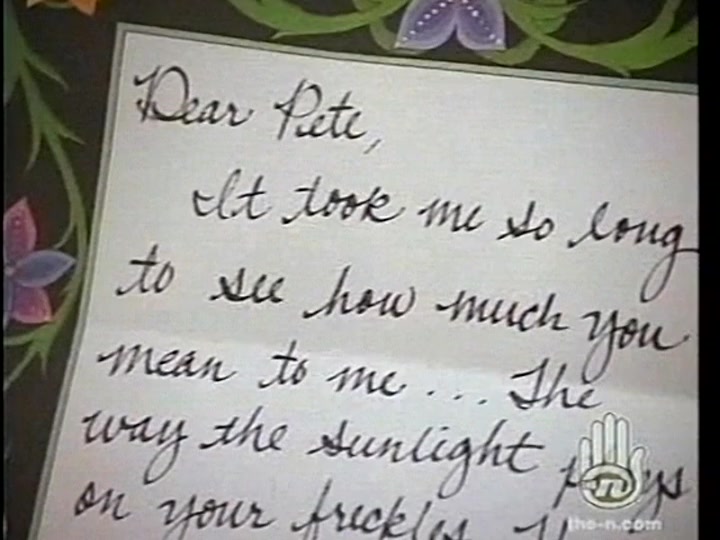 Dear Pete,
It took me so long
to see how much you
mean to me... The
way the sunlight plays
on your freckles
the-n.com